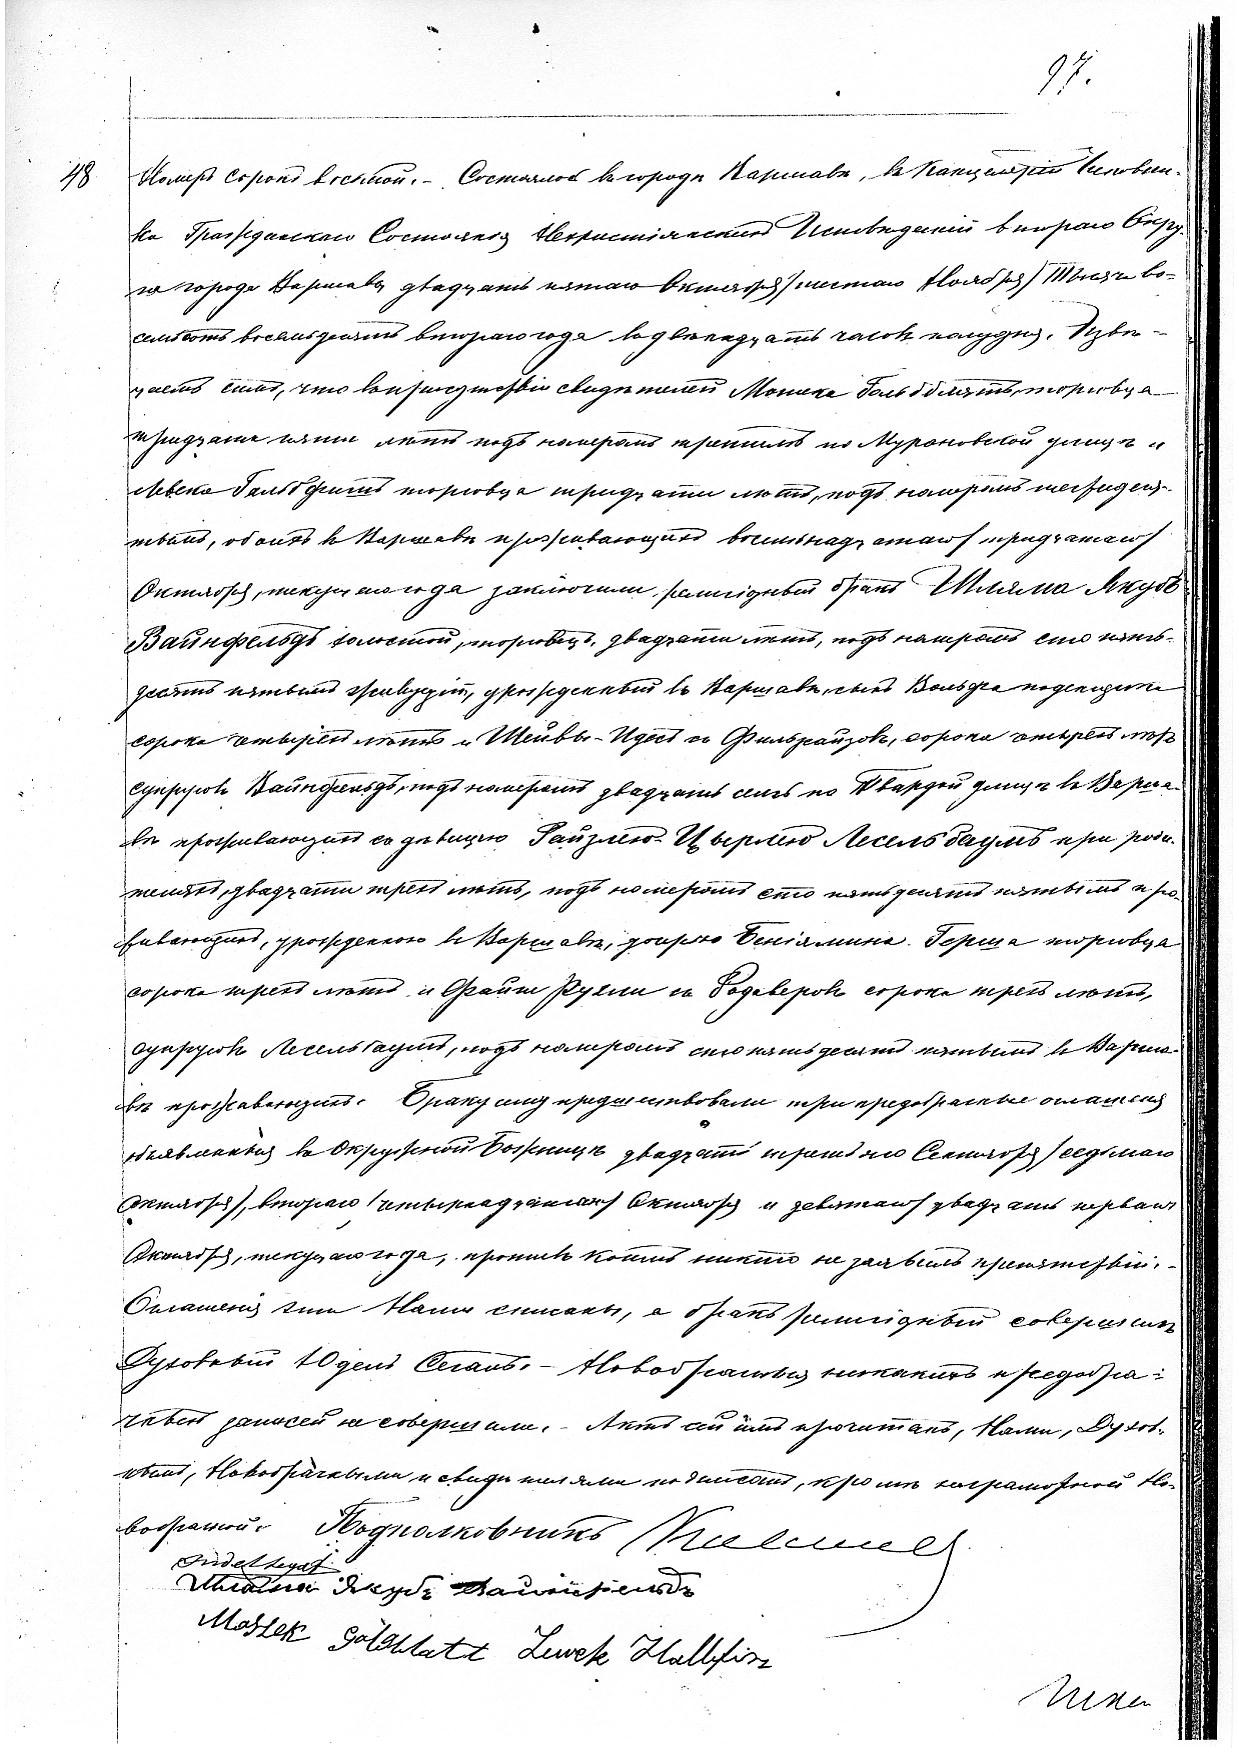 97.
48 Номеръ сорокъ восьмой. – Состоялось въ городѣ Варшавѣ, въ Канцеляріи Чиновни-
ка Гражданскаго Состоянія Нехристіянскихъ Исповѣданій втораго Окру-
га города Варшавы двадцать пятаго Октября /шестаго Ноября/ Тысяча во-
семьсотъ восемьдесятъ втораго года въ двѣнадцать часовъ полудня. Объя-
частъ симъ, что въ присутствіи свидѣтелей Мошка Гольдблятъ, торговца
тридцати пяти лѣтъ подъ номеромъ третьимъ по Мурановской улицѣ и
Левека торговца тридцати лѣтъ, подъ номеромъ шестидеся-
тымъ, обоихъ въ Варшавѣ проживающихъ восемнадцатаго /тридцатаго/
Октября, текущаго года заключили религіозный бракъ Шляма Якубъ
Вайнфельдъ холостой, торговецъ, двадцати лѣтъ, подъ номеромъ сто пять-
десятъ пятымъ живущій, урожденный въ Варшавѣ, сынъ Вольфа поденщика
сорока четырехъ лѣтъ и Шейвы-Идесъ съ сорока четырехъ лѣтъ
супруговъ Вайнфельдъ, подъ номеромъ двадцать семь по Твардой улицѣ въ Варша-
вѣ проживающихъ съ дѣвицею Гайзлею-Цырлею Лесельбаумъ при роди-
теляхъ, двадцати трехъ лѣтъ, подъ номеромъ сто пятьдесятъ пятымъ про-
живающихъ, урожденною въ Варшавѣ, дочерью Беніямина Герша торговца
сорока трехъ лѣтъ и Файги Рухли съ сорока трехъ лѣтъ,
супруговъ Лесельбаумъ, подъ номеромъ сто пятьдесятъ пятымъ въ Варша-
вѣ проживающихъ. Браку сему предшествовали три предбрачныя оглашенія
объявленныя въ Окружной Божницѣ двадцать третьяго Сентября /седьмаго
Октября/, втораго /четырнадцатаго/ Октября и девятаго /двадцать перваго/
Октября, текущаго года, противъ коихъ никто не заявилъ препятствій. –
Оглашенія эти Нами списаны, а бракъ религіозный совершилъ
Духовный Юдель Сегалъ. – Новобрачные никакихъ предбра-
чныхъ записей не совершили. – Актъ сей имъ прочитанъ, Нами, Духов-
нымъ, Новобрачными и свидѣтелями подписанъ, кромѣ неграмотной Но-
вобрачной. Подполковникъ
Judel Segał
Шлама Якубъ Вайнфельдъ
Moszek Goldblatt Lewek